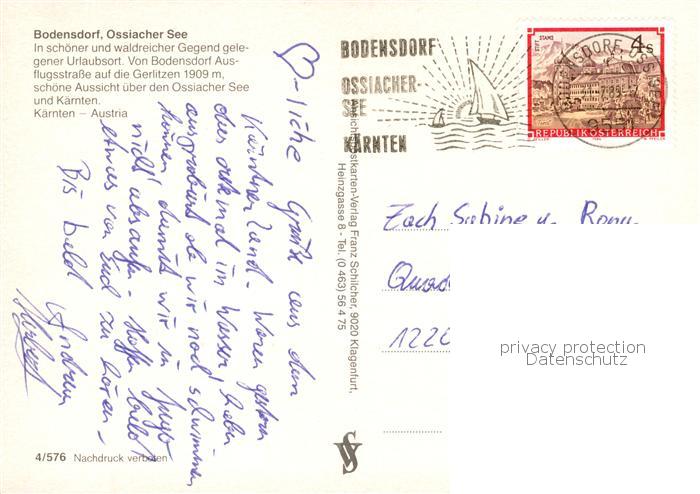 Bodensdorf, Ossiacher See
In schöner und waldreicher Gegend gele-
gener Urlaubsort. Von Bodensdorf Aus-
flugsstraße auf die Gerlitzen 1909 m,
schöne Aussicht über den Ossiacher See
und Kärnten.
Kärnten – Austria
♡-liche Grüße aus dem
Kärntner Land. Waren gestern
das erstmal im Wasser! Haben
ausprobiert ob wir noch schwimmen
können damit wir in Jugo
nicht absaufen. Hoffen bald
etwas von Euch zu hören.
Bis bald
Andrea
Herbert
4/576 Nachdruck verboten
Ansichtskarten-Verlag Franz Schilcher, 9020 Klagenfurt,
Heinzgasse 8 - Tel. (0 463) 56 4 75
BODENSDORF
OSSIACHER-
SEE
KÄRNTEN
STIFT STAMS
4s
REPUBLIK ÖSTERREICH
Zach Sabine u.
1220
privacy protection
Datenschutz